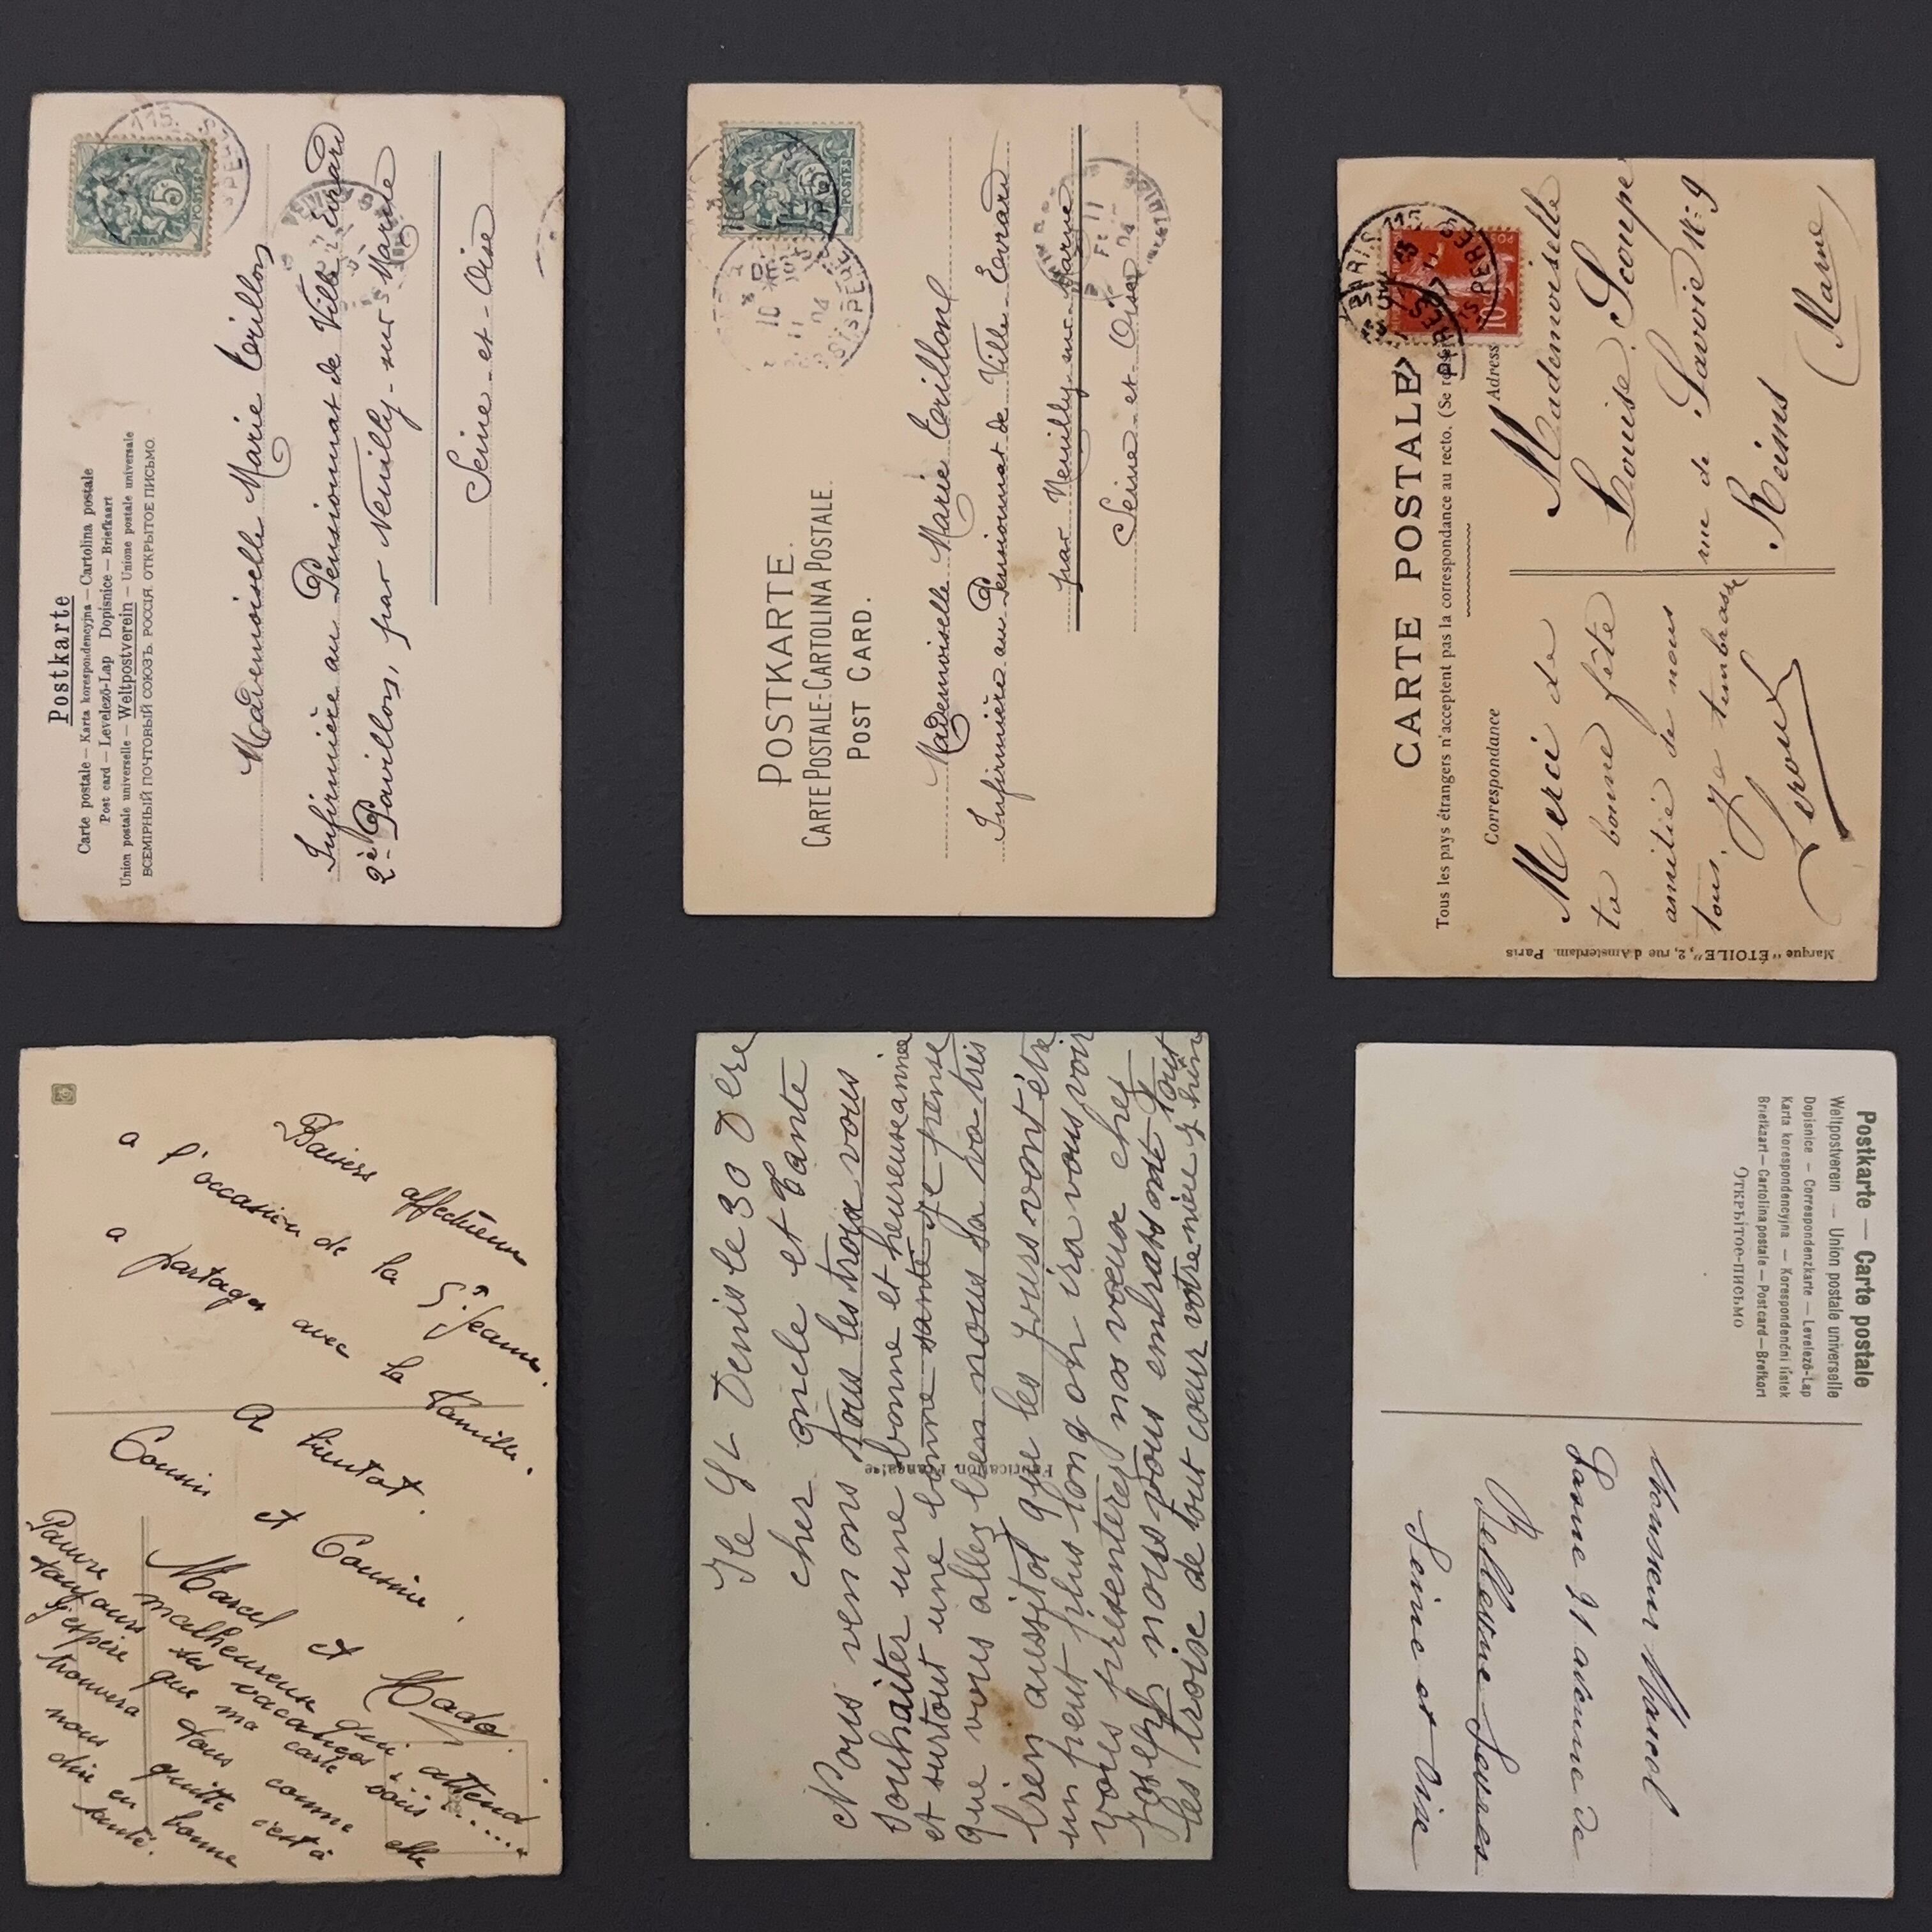 Postkarte
Carte postale — Karta korespondencyjna — Cartolina postale
Post card — Levelező-Lap Dopisnice — Briefkaart
Union postale universelle — Weltpostverein — Unione postale universale
ВСЕМІРНЫЙ ПОЧТОВЫЙ СОЮЗЪ. РОССІЯ. ОТКРЫТОЕ ПИСЬМО.
5
POSTES
Mademoiselle Marie Corillon
Infirmière au Pensionnat de Ville-Evrard
2è Pavillon, par Neuilly-sur-Marne
Seine-et-Oise
POSTKARTE.
CARTE POSTALE-CARTOLINA POSTALE.
POST CARD.
5
POSTES
Mademoiselle Marie Corillon
Infirmière au Pensionnat de Ville-Evrard
par Neuilly-sur-Marne
Seine-et-Oise
CARTE POSTALE
Tous les pays étrangers n'acceptent pas la correspondance au recto. (Se
Correspondance
Adress
PARIS
10
Merci de
ta bonne fête
amitié de nous
tous. Je tembrasse
Mademoiselle
Louise
rue de Savoie N° 9
Reims
(Marne)
Marque "ÉTOILE", 2, rue d'Amsterdam. Paris
Baisers affectueux
a l'occasion de la St Jeanne.
a partager avec la famille.
A bientot.
Cousin et Cousine,
Marcel et Mado.
Pauvre malheureux qui attend
toujours ses vacances .....
J'espère que ma carte vous
trouvera tous comme elle
nous quitte c'est à
dire en bonne
santé.
Ile St Denis le 30 Dere
cher oncle et Tante
Nous venons tous les trois vous
souhaiter une bonne et heureuse année
et surtout une bonne santé je pense
que vous allez bien nous sa va très
bien aussitot que les jours vont être
un peut plus long on ira vous voir
vous présenter nos vœux chez
Joseph nous vous embrassont tout
les troise de tout cœur votre nièce
Fabrication Française
Postkarte — Carte postale
Weltpostverein — Union postale universelle
Dopisnice — Correspondenzkarte — Levelező-Lap
Karta korespondencyjna — Korespondenční lístek
Briefkaart — Cartolina postale — Post card — Brefkort
Открытое-письмо
Monsieur Manuel
91 avenue de
Bellevue
Seine et Oise